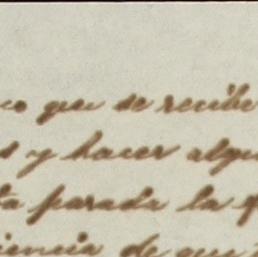 co que se recibe
s y hacer algu
ta parada la
iencia de que